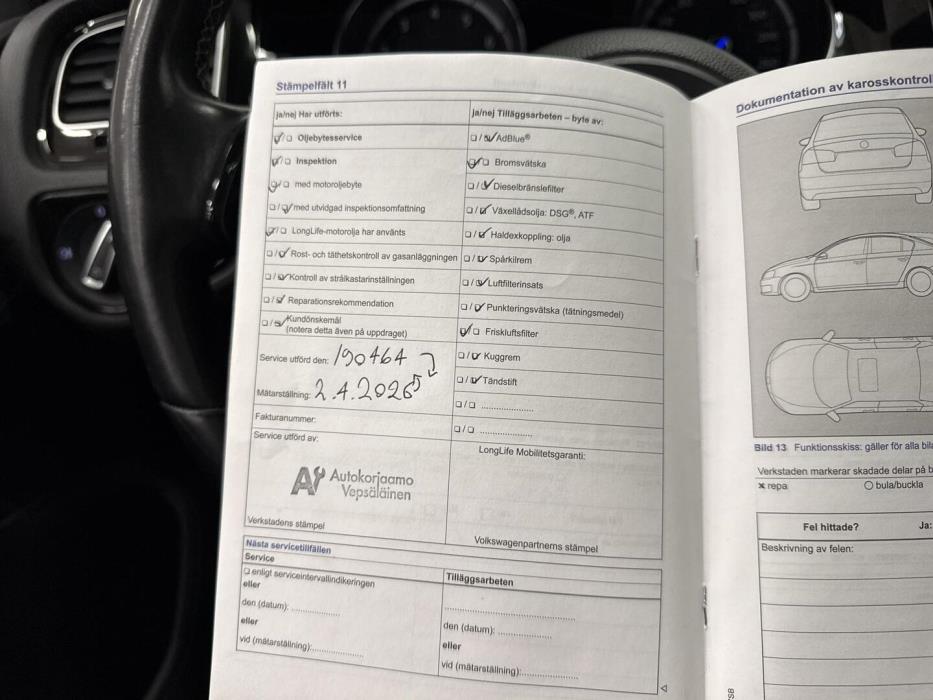 Stämpelfält 11
ja/nej Har utförts:
☑/☐ Oljebytesservice
☑/☐ Inspektion
☑/☐ med motoroljebyte
☐/☑ med utvidgad inspektionsomfattning
☑/☐ LongLife-motorolja har använts
☐/☑ Rost- och täthetskontroll av gasanläggningen
☐/☑ Kontroll av strålkastarinställningen
☐/☑ Reparationsrekommendation
☐/☑ Kundönskemål
(notera detta även på uppdraget)
Service utförd den: 190464
Mätarställning: 2.4.2026
Fakturanummer:
Service utförd av:
Autokorjaamo
Vepsäläinen
Verkstadens stämpel
ja/nej Tilläggsarbeten – byte av:
☐/☑ AdBlue®
☑/☐ Bromsvätska
☐/☑ Dieselbränslefilter
☐/☑ Växellådsolja: DSG®, ATF
☐/☑ Haldexkoppling: olja
☐/☑ Spårkilrem
☐/☑ Luftfilterinsats
☐/☑ Punkteringsvätska (tätningsmedel)
☑/☐ Friskluftsfilter
☐/☑ Kuggrem
☐/☑ Tändstift
☐/☐ ....................
☐/☐ ....................
LongLife Mobilitetsgaranti:
Volkswagenpartnerns stämpel
Nästa servicetillfällen
Service
☐ enligt serviceintervallindikeringen
eller
den (datum): ....................
eller
vid (mätarställning):....................
Tilläggsarbeten
........................................
den (datum): ....................
eller
vid (mätarställning):....................
Dokumentation av karosskontroll
Bild 13 Funktionsskiss: gäller för alla
Verkstaden markerar skadade delar på
× repa
○ bula/buckla
Fel hittade?
Ja:
Beskrivning av felen: